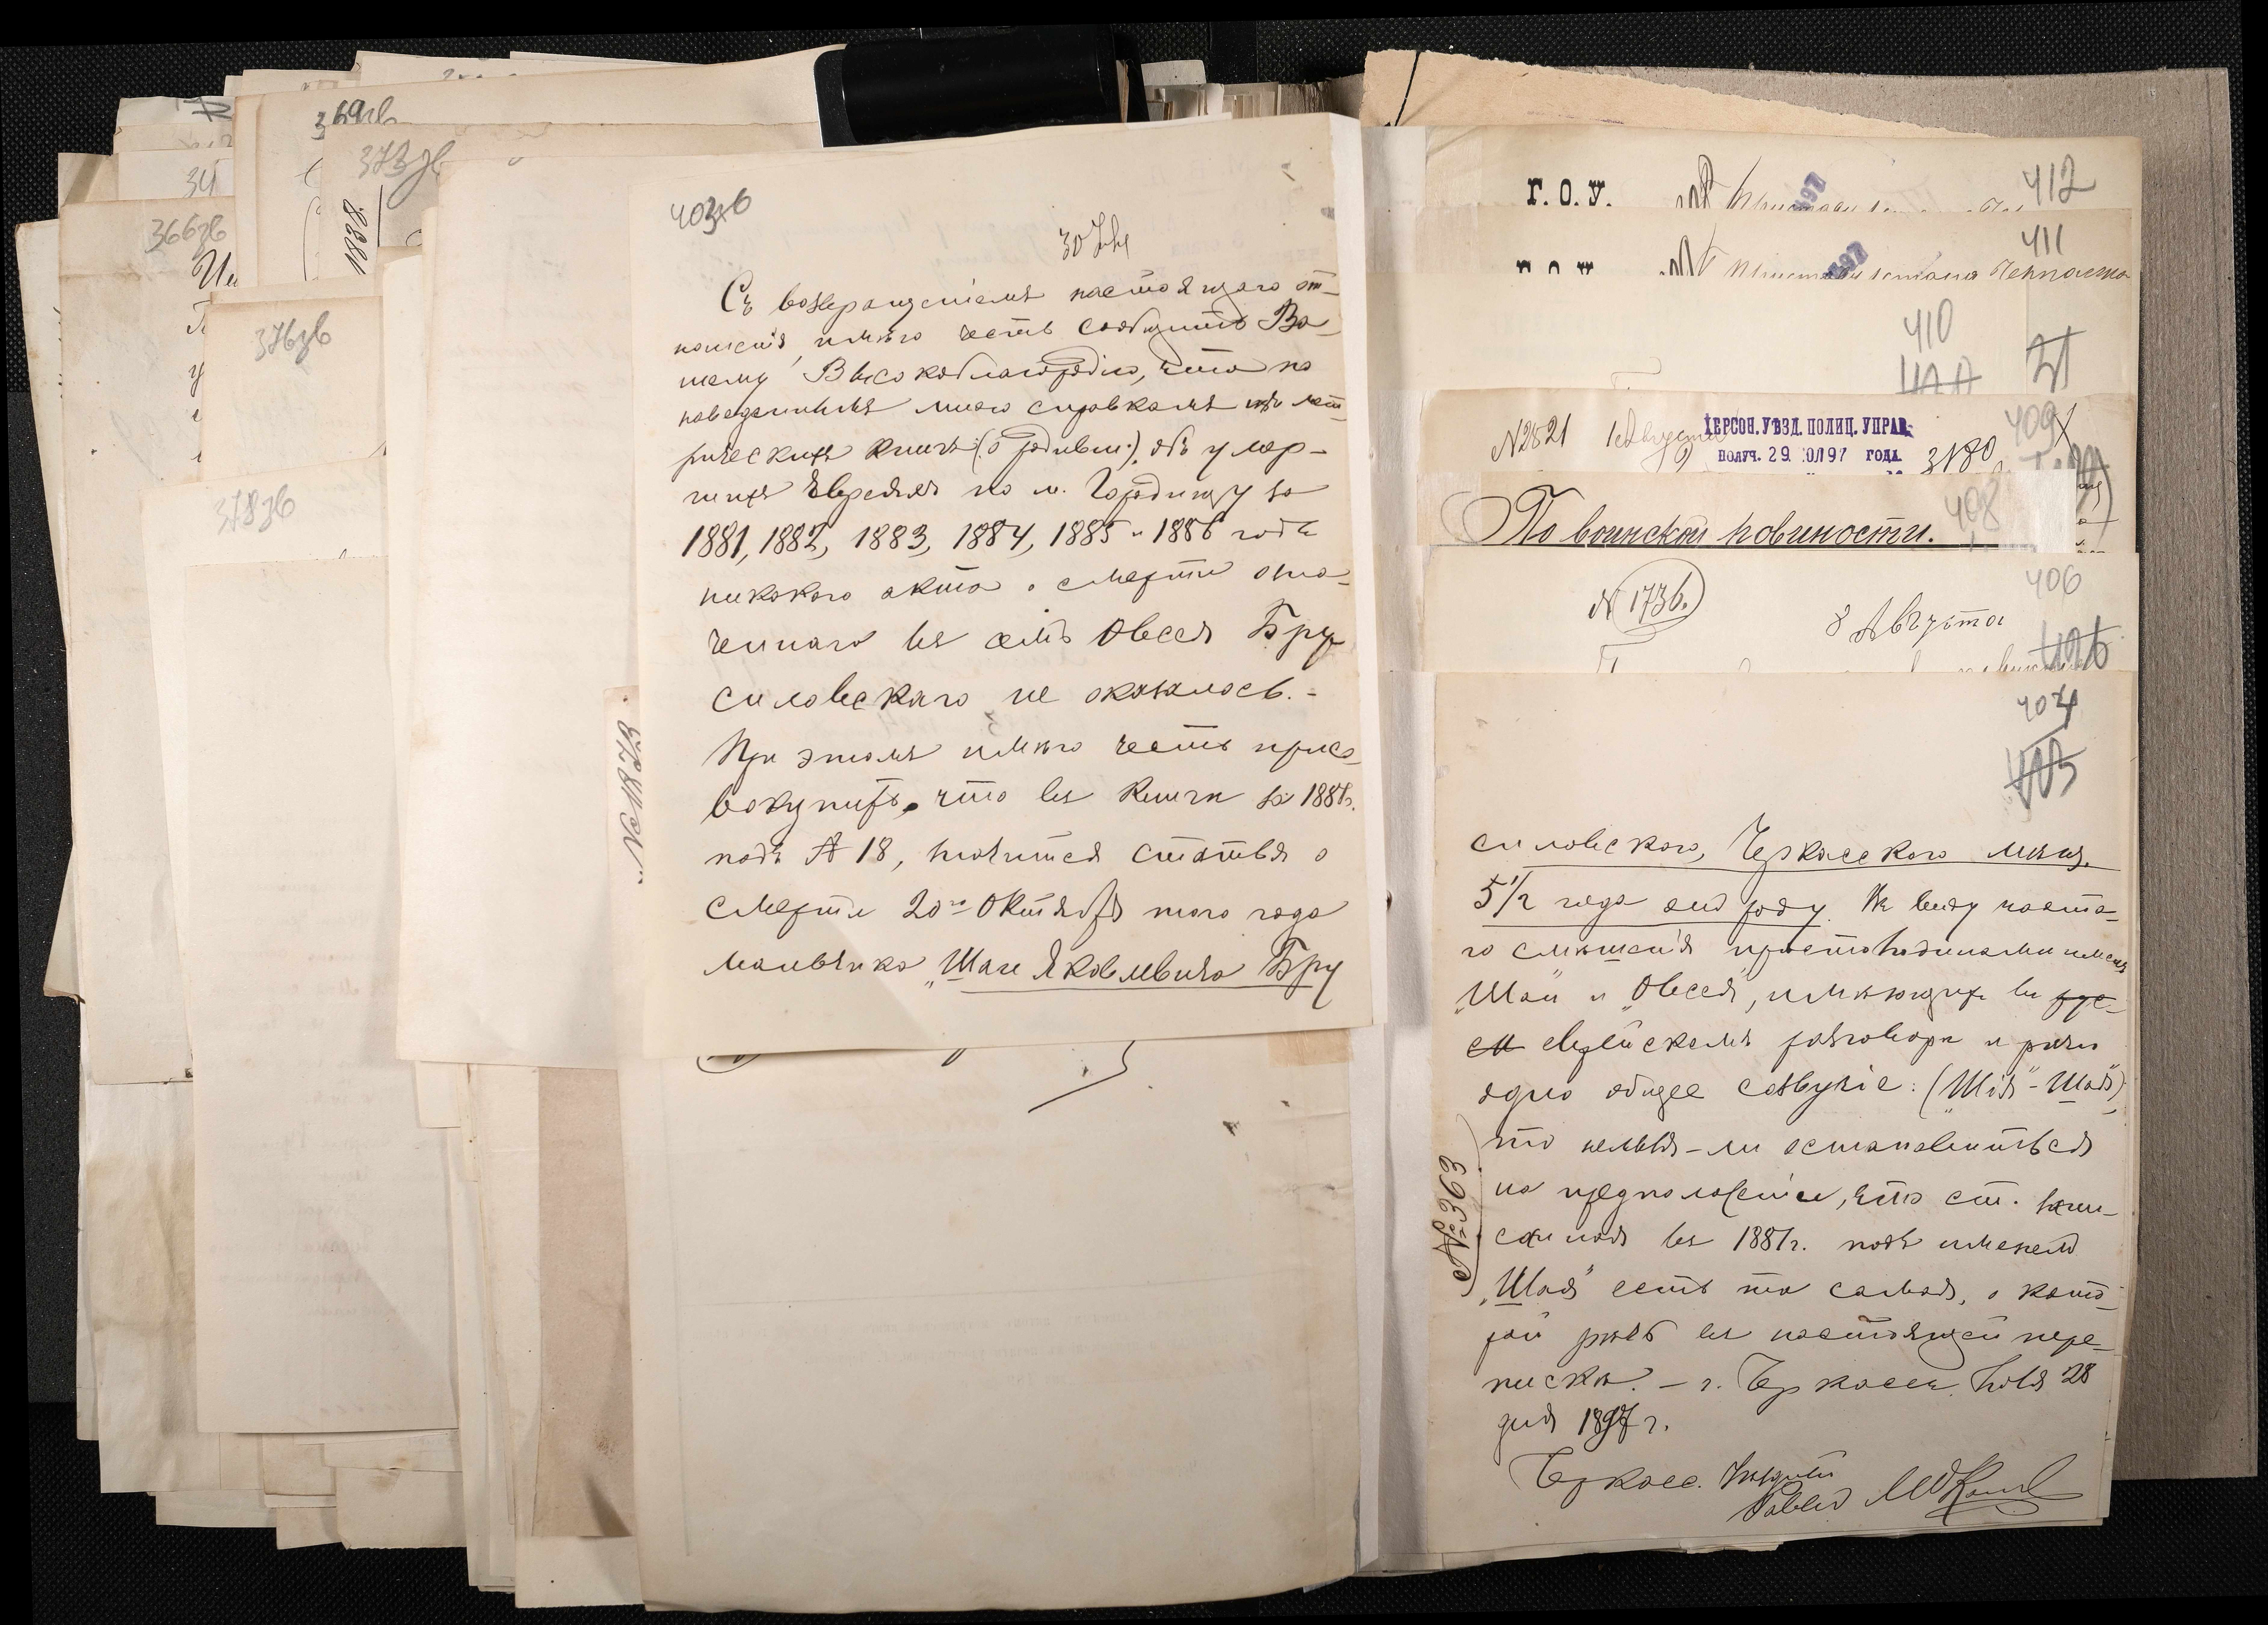 369зв
373зв
34
1898.
366зв
376зв
378зв
403зв
Съ возвращеніемъ настоящаго от-
ношенія, имѣю честь сообщить Ва-
шему Высокоблагородію, что по
наведеннымъ мною справкамъ изъ мет
рическихъ книгъ (о родивш.), объ умер-
шихъ Евреяхъ по м. Городищу за
1881, 1882, 1883, 1884, 1885 и 1886 годы
никакого акта о смерти озна-
ченнаго въ семъ Овсея Бру
силовскаго не оказалось. -
При этомъ имѣю честь присо
вокупить, что въ книгѣ за 1881г.
подъ № 18, значится статья о
смерти 20го Октября того года
мальчика „Шаи Яковлевича Бру
№ 1873
Г. О. У.
412
411
Пристави стана
410
21
№ 2821
ХЕРСОН. УѢЗД. ПОЛИЦ. УПРАВ.
ПОЛУЧ. 29 ЮЛ 97 ГОДА
3180
409
По воинской повиности.
408
№ 1736.
8 Августа
406
404
405
силовского, Черкасского мѣщ.
5 1/2 года отъ роду. Въ виду часта-
го смѣшенія простолюдинами именъ
„Шаи" и „Овсея", имѣющихъ въ рус-
см еврейскомъ разговорѣ и рѣчи
одно общее созвучіе: („Шія" - Шая")
то нельзя-ли остановиться
на предположеніи, что ст. запи-
санная въ 1881г. подъ именемъ
„Шая" есть та самая, о кото-
рой рѣчь въ настоящей пере-
пискѣ. - г. Черкассы. Іюля 28
дня 1897 г.
Черкасс.
№ 363